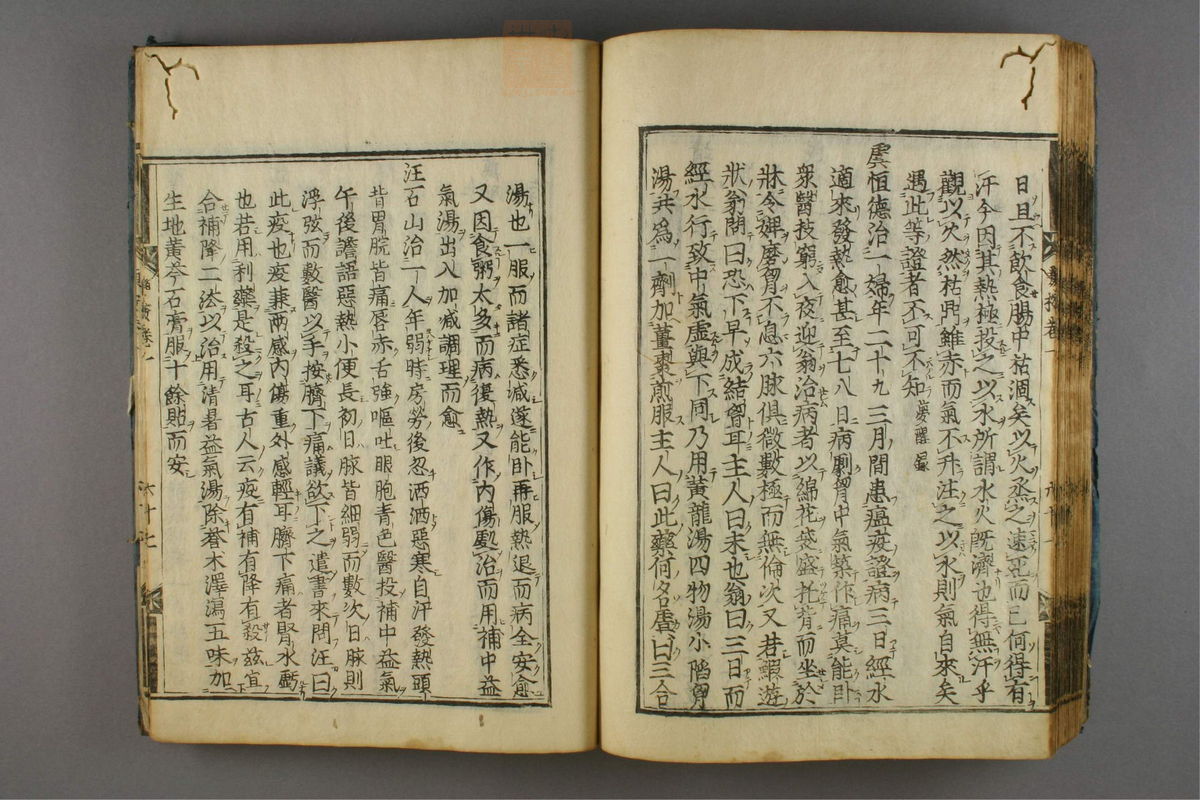 日且不飲食腸中枯涸矣以火烝之速死而已何得有
汗今因其熱極投之以水所謂水火既濟也得無汗乎
觀以火然枯鼎雖赤而氣不升注之以水則氣自來矣
遇此等證者不可不知
虞恒德治一婦年二十九三月間患瘟疫證病三日經水
適來發熱愈甚至七八日病劇胷中氣築作痛莫能臥
衆醫技窮入夜迎翁治病者以綿花袋盛托背而坐於
牀令婢磨胷不息六脉俱微數極而無倫次又若蝦遊
狀翁問曰恐下早成結胷耳主人曰未也翁曰三日而
經水行致中氣虛與下同乃用黃龍湯四物湯小陷胷
湯共爲一劑加薑棗煎服主人曰此藥何名虞曰三合
湯也一服而諸症悉減遂能臥再服熱退而病全安愈
又因食粥太多而病復熱又作內傷處治而用補中益
氣湯出入加減調理而愈
汪石山治一人年弱時房勞後忽洒洒惡寒自汗發熱頭
背胃脘皆痛唇赤舌強嘔吐眼胞青色醫投補中益氣
午後譫語惡熱小便長初日脉皆細弱而數次日脉則
浮弦而數醫以手按臍下痛議欲下之遣書來問汪曰
此疫也疫兼兩感內傷重外感輕耳臍下痛者腎水虧
也若用利藥是殺之耳古人云疫有補有降有殺茲宜
合補降二法以治用清暑益氣湯除蒼木澤瀉五味加
生地黃芩石膏服十餘貼而安
六十七